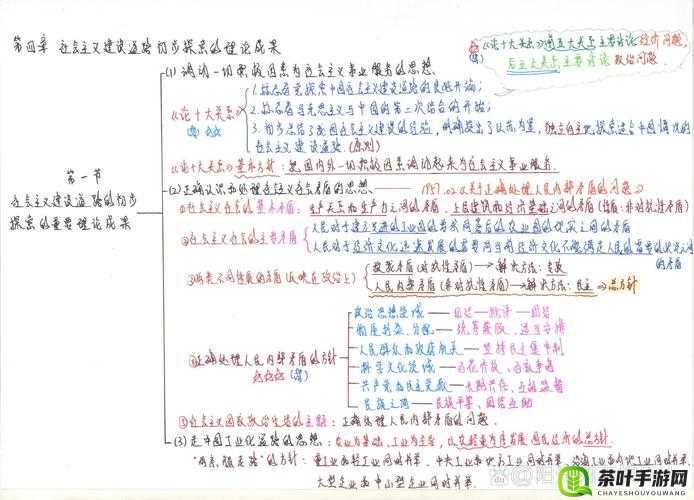 第四章 社会主义建设道路初步探索的理论成果
《论十大关系》前五大关系主要讨论经济问题,
后五大关系主要讨论政治问题.
(1) 调动一切积极因素为社会主义事业服务的思想.
《论十大关系》
1. 标志着党探索中国社会主义建设道路的良好开端;
2. 标志着马克思主义与中国的第二次结合的开始;
3. 初步总结了我国社会主义建设的经验, 明确提出了以苏为鉴, 独立自主地探索适合中国情况的
社会主义建设道路 (原则)
《论十大关系》基本方针: 把国内外一切积极因素调动起来为社会主义事业服务.
第一节
社会主义建设道路的初步
探索的重要理论成果
(2) 正确认识和处理社会主义社会矛盾的思想. 1957.2《关于正确处理人民内部矛盾的问题》
①社会主义社会的基本矛盾: 生产关系和生产力之间的矛盾, 上层建筑和经济基础之间的矛盾 (性质: 非对抗性矛盾)
②社会主义社会的主要矛盾
人民对于建立先进的工业国的要求同落后的农业国的现实之间的矛盾
人民对于经济文化迅速发展的需要同当前经济文化不能满足人民的需要的状况之间
的矛盾
③两类不同性质的矛盾(反映在政治上)
敌我矛盾 (对抗性矛盾) → 解决方法: 专政
人民内部矛盾 (非对抗性矛盾) → 解决方法: 民主 ⇒ 总方针
④正确处理人民内部矛盾的方针
政治思想领域 — 团结 — 批评 — 团结
物质利益、分配 — 统筹兼顾、适当安排
人民群众和政府机关 — 坚持民主集中制
科学文化领域 — 百花齐放、百家争鸣
共产党和民主党派 — 长期共存、互相监督
民族之间 — 民族平等、团结互助
⑤社会主义国家政治生活的主题: 正确处理人民内部矛盾的问题.
(3) 走中国工业化道路的思想: 农业为基础、工业为主导, 以农轻重为序发展国民经济的总方针
"两条腿走路"的方针: 重工业和轻工业同时并举. 中央工业和地方工业同时并举. 沿海工业和内地工业同时并举.
大型企业和中小型企业同时并举.
茶叶手游网
CHAYESHOUYOUWANG